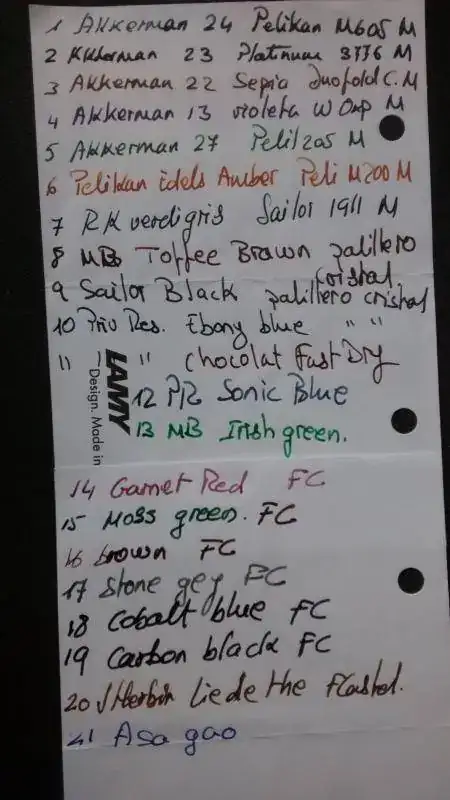 1 Akkerman 24 Pelikan M605 M
2 Akkerman 23 Platinum 3776 M
3 Akkerman 22 Sepia Duofold C. M
4 Akkerman 13 violeta W Exp M
5 Akkerman 27 Peli 205 M
6 Pelikan Edels Amber Peli M200 M
7 RK verdigris Sailor 1911 M
8 MB Toffee Brown palillero cristal
9 Sailor Black palillero cristal
10 Priv Res. Ebony blue " "
11 — " chocolat Fast Dry
LAMY
Design. Made in
12 P/R Sonic Blue
13 MB Irish green.
14 Garnet Red FC
15 Moss green. FC
16 brown FC
17 Stone gey FC
18 Cobalt blue FC
19 Carbon black FC
20 J Herbin Lie de the
21 Asa gao